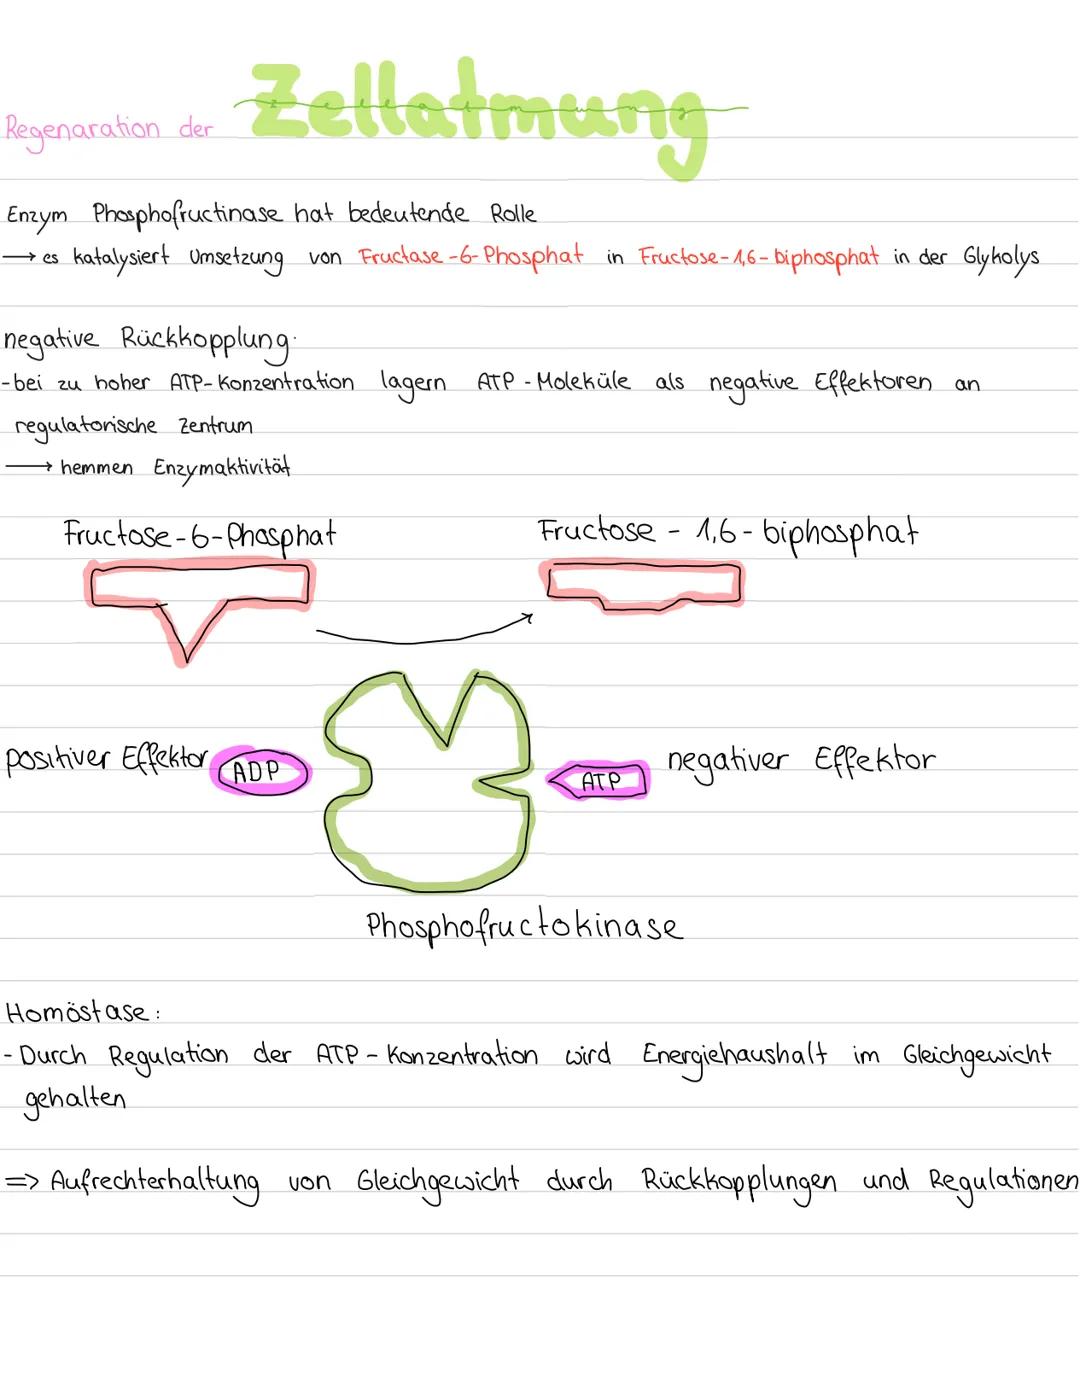 Regenaration der Zellatmung
Enzym Phosphofructinase hat bedeutende Rolle
→ es katalysiert Umsetzung von Fructase-6-Phosphat in Fructose-1,6-biphosphat in der Glykolys
negative Rückkopplung:
-bei zu hoher ATP-Konzentration lagern ATP-Moleküle als negative Effektoren an
regulatorische Zentrum
→ hemmen Enzymaktivität
Fructose-6-Phosphat Fructose-1,6-biphosphat
positiver Effektor ADP ATP negativer Effektor
Phosphofructokinase
Homöstase:
- Durch Regulation der ATP-Konzentration wird Energiehaushalt im Gleichgewicht
gehalten
=> Aufrechterhaltung von Gleichgewicht durch Rückkopplungen und Regulationen